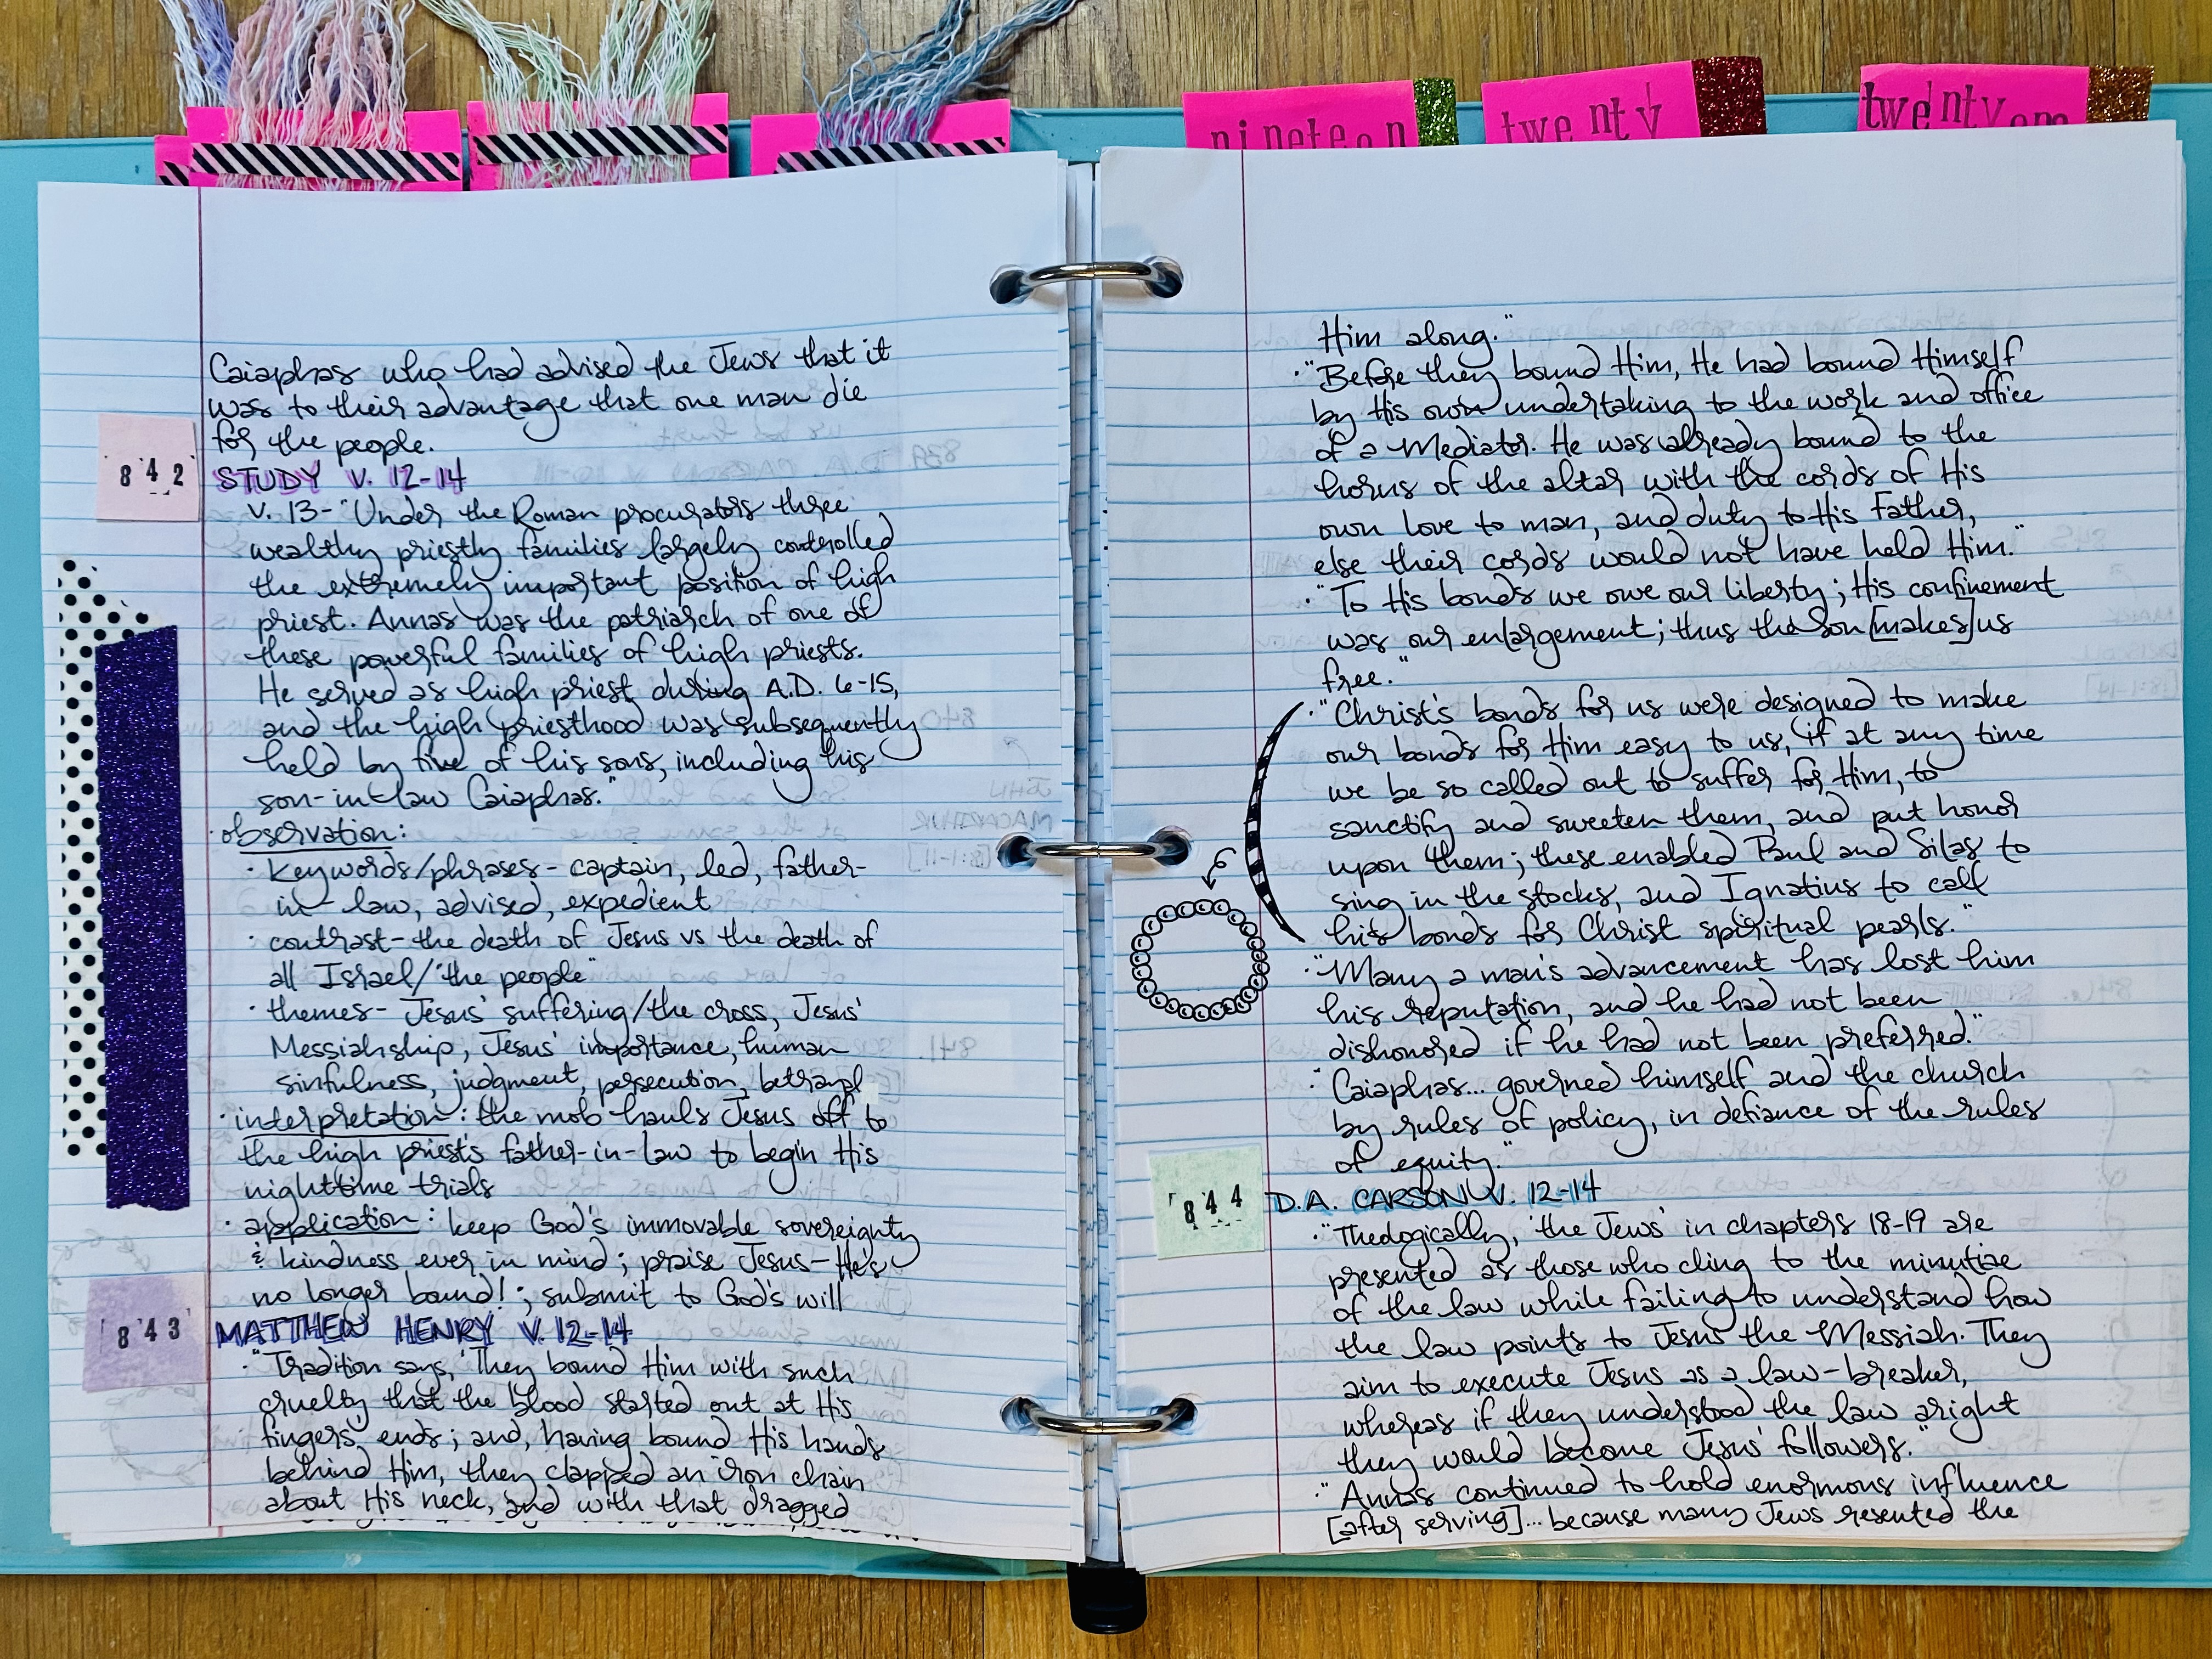 nineteen
twenty
twenty
Caiaphas who had advised the Jews that it
was to their advantage that one man die
for the people.
842
STUDY v. 12-14
v. 13- "Under the Roman procurators three
wealthy priestly families largely controlled
the extremely important position of high
priest. Annas was the patriarch of one of
these powerful families of high priests.
He served as high priest during A.D. 6-15,
and the high priesthood was subsequently
held by five of his sons, including his
son-in-law Caiaphas."
· observation:
· keywords/phrases- captain, led, father-
in-law, advised, expedient
· contrast- the death of Jesus vs the death of
all Israel/"the people"
· themes- Jesus' suffering/the cross, Jesus'
Messiahship, Jesus' importance, human
sinfulness, judgment, persecution, betrayal
· interpretation: the mob hauls Jesus off to
the high priest's father-in-law to begin His
nighttime trials
· application: keep God's immovable sovereignty
& kindness ever in mind; praise Jesus- He's
no longer bound!; submit to God's will
843
MATTHEW HENRY v. 12-14
· "Tradition says, 'They bound Him with such
cruelty that the blood started out at His
fingers' ends; and, having bound His hands
behind Him, they clapped an iron chain
about His neck, and with that dragged
Him along."
· "Before they bound Him, He had bound Himself
by His own undertaking to the work and office
of a Mediator. He was already bound to the
horns of the altar with the cords of His
own love to man, and duty to His Father,
else their cords would not have held Him."
· "To His bonds we owe our liberty; His confinement
was our enlargement; thus the Son [makes] us
free."
· "Christ's bonds for us were designed to make
our bonds for Him easy to us, if at any time
we be so called out to suffer for Him, to
sanctify and sweeten them, and put honor
upon them; these enabled Paul and Silas to
sing in the stocks, and Ignatius to call
his bonds for Christ spiritual pearls."
· "Many a man's advancement has lost him
his reputation, and he had not been
dishonored if he had not been preferred."
· "Caiaphas... governed himself and the church
by rules of policy, in defiance of the rules
of equity."
844
D.A. CARSON v. 12-14
· "Theologically, 'the Jews' in chapters 18-19 are
presented as those who cling to the minutiae
of the law while failing to understand how
the law points to Jesus the Messiah. They
aim to execute Jesus as a law-breaker,
whereas if they understood the law aright
they would become Jesus' followers."
· "Annas continued to hold enormous influence
[after serving]... because many Jews resented the